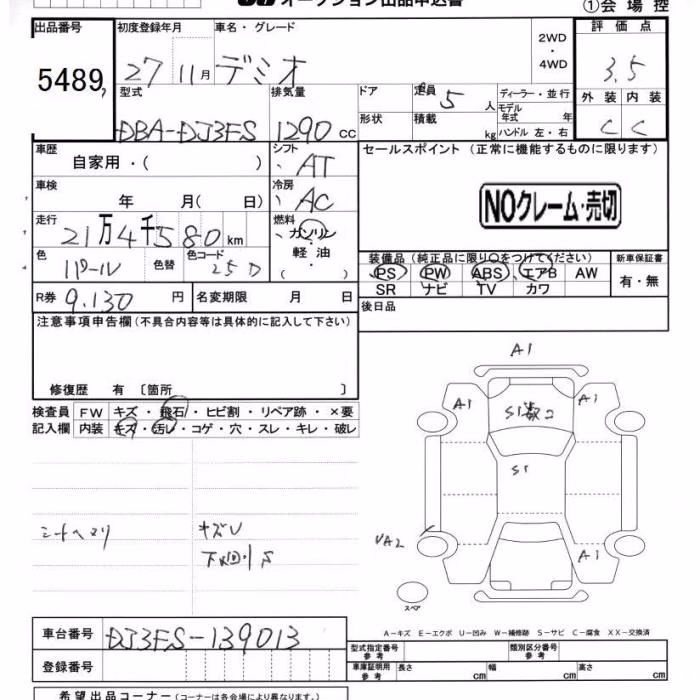 オークション出品申込書
①会場控
出品番号 初度登録年月 車名・グレード 2WD・4WD 評価点
5489 27 11月 デミオ 3.5
型式 排気量 ドア 定員 5人 ディーラー・並行 外装 内装
DBA-DJ3FS 1290cc 形状 積載 kg モデル年式 年 ハンドル 左・右 C C
車歴 自家用・( ) シフト AT セールスポイント(正常に機能するものに限ります)
車検 年 月( 日) 冷房 AC
NOクレーム・売切
走行 21万4千580km 燃料 ガソリン・軽油・( )
色 パール 色替 色コード 25D
装備品(純正品に限り○をつけてください) 新車保証書
PS PW ABS エアB AW 有・無
SR ナビ TV カワ
R券 9.130円 名変期限 月 日 後日品
注意事項申告欄(不具合内容等は具体的に記入して下さい)
修復歴 有 〔箇所 〕
検査員記入欄 FW キズ・飛石・ヒビ割・リペア跡・×要
内装 キズ・汚レ・コゲ・穴・スレ・キレ・破レ
シートヘタリ キズU
下廻りS
A1
A1 S1数コ A1
S1
UA2 A1
スペア
A-キズ E-エクボ U-凹み W-補修跡 S-サビ C-腐食 XX-交換済
車台番号 DJ3FS-139013
型式指定番号 参考 類別区分番号 参考
登録番号
車庫証明用 参考 長さ cm 幅 cm 高さ cm
希望出品コーナー(コーナーは各会場により異なります。)